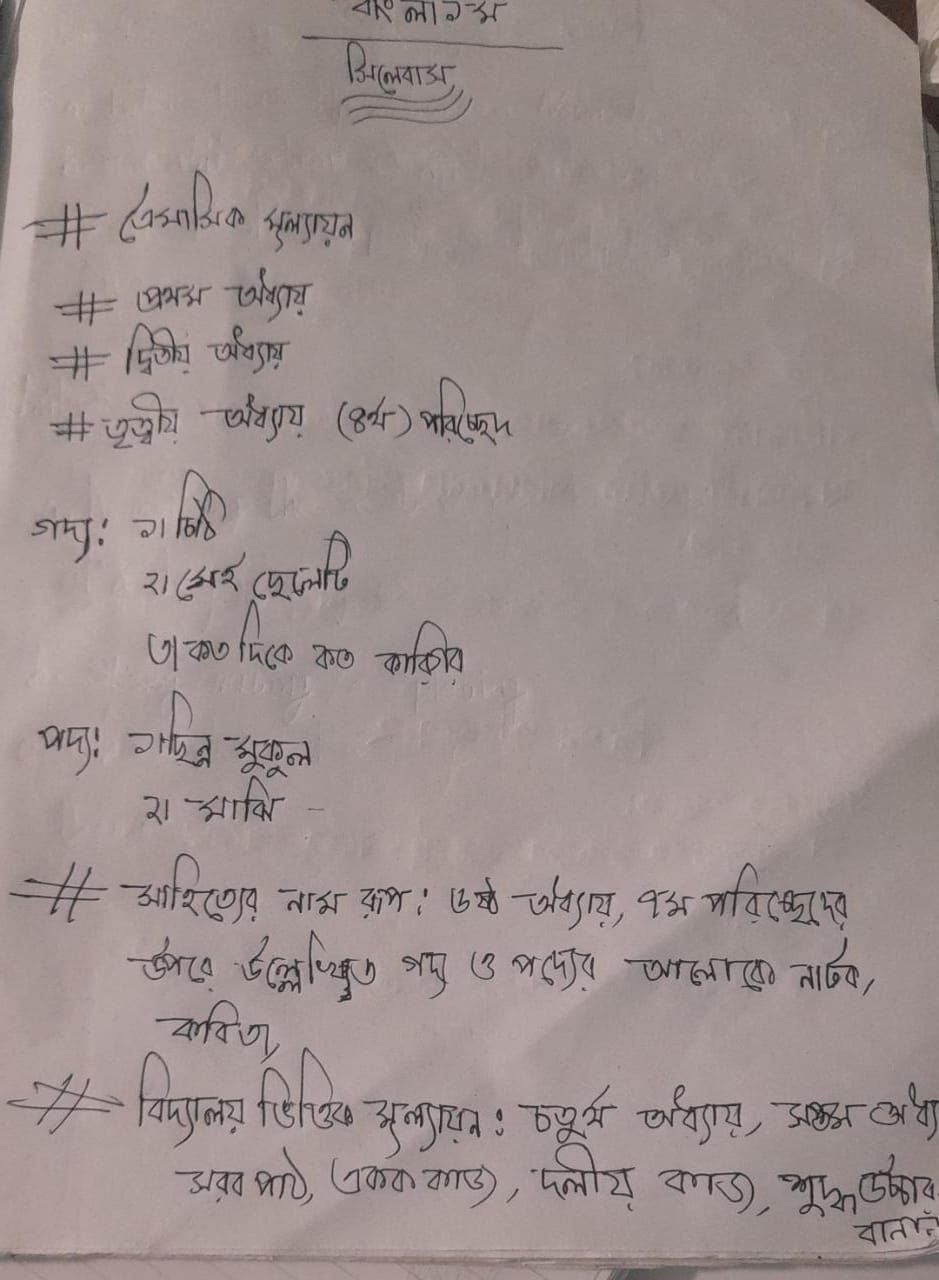 বাংলা ১ম
সিলেবাস
# ত্রৈমাসিক মূল্যায়ন
# প্রথম অধ্যায়
# দ্বিতীয় অধ্যায়
# তৃতীয় অধ্যায় (৪র্থ) পরিচ্ছেদ
গদ্য: ১। চিঠি
২। সেই ছেলেটি
৩। কত দিকে কত কারিগর
পদ্য: ১। ছিন্ন মুকুল
২। মাঝি -
# সাহিত্যের নাম রূপ: ৬ষ্ঠ অধ্যায়, ৭ম পরিচ্ছেদের
উপরে উল্লেখিত গদ্য ও পদ্যের আলোকে নাটক,
কবিতা,
# বিদ্যালয় ভিত্তিক মূল্যায়ন: চতুর্থ অধ্যায়, সপ্তম অধ্যা
সরব পাঠ, একক কাজ, দলীয় কাজ, শুদ্ধ উচ্চার
বানান